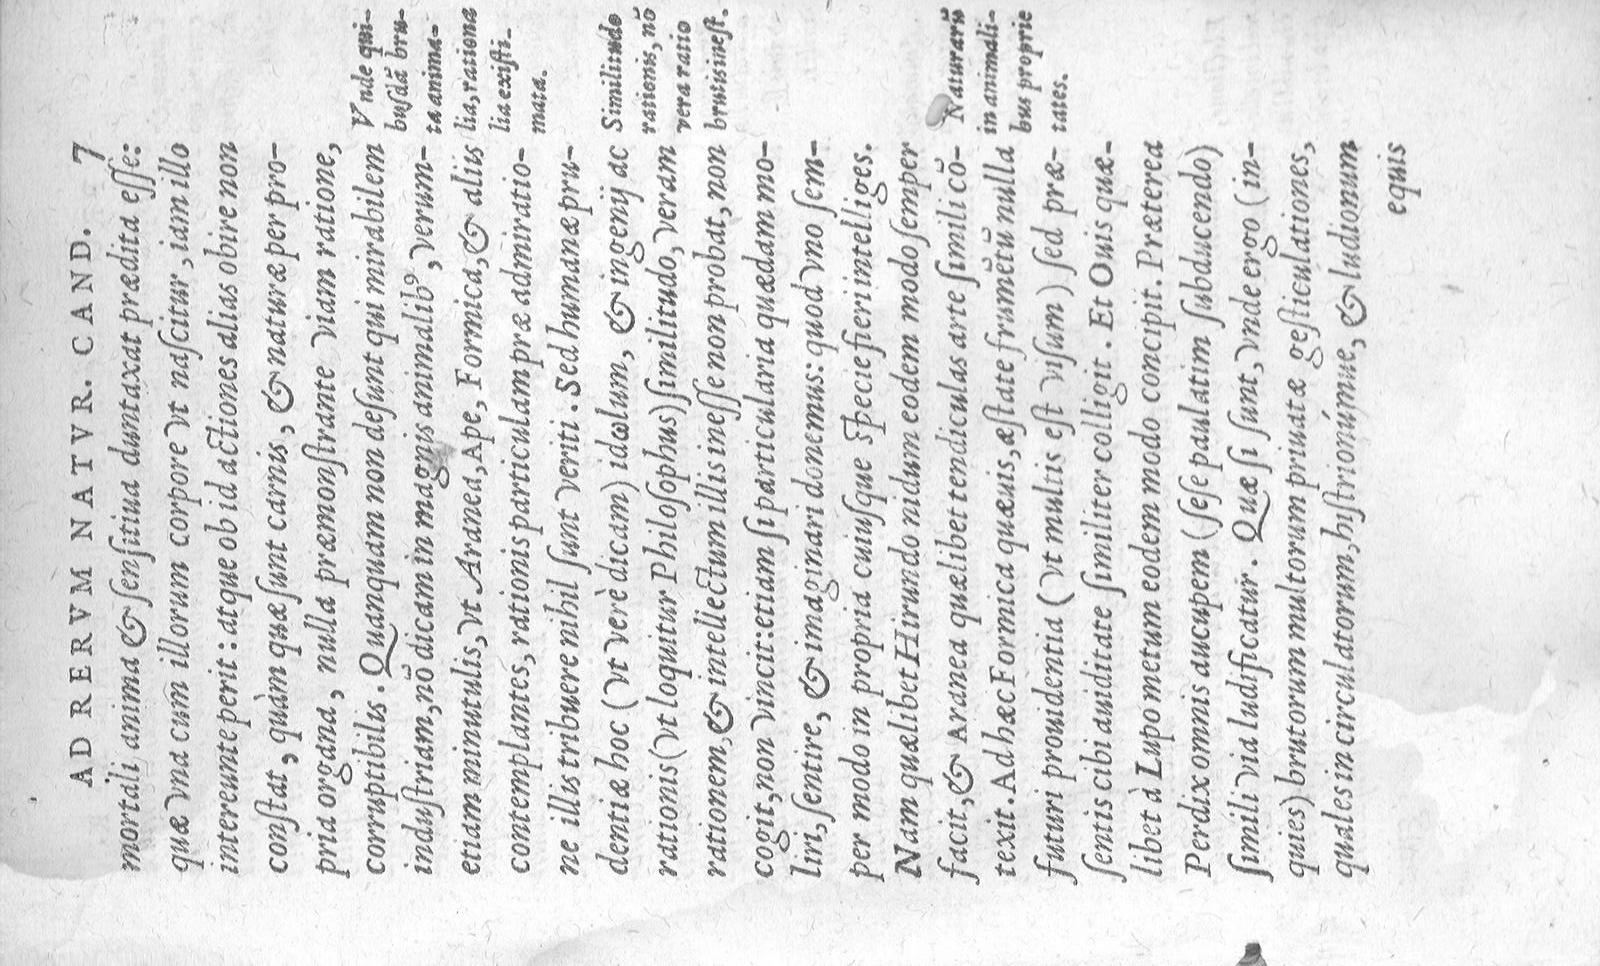 AD RERVM NATVR. CAND. 7
mortali anima & ſenſitiua duntaxat prædita eſſe:
quæ vna cum illorum corpore vt naſcitur, iam illo
intereunte perit: atque ob id actiones alias obire non
conſtat, quàm quæ ſunt carnis, & naturæ per pro-
pria organa, nulla præmonſtrante viam ratione,
corruptibilis. Quanquam non deſunt qui mirabilem
induſtriam, nõ dicam in magnis animalibꝰ, verum-
etiam minutulis, vt Aranea, Ape, Formica, & aliis
contemplantes, rationis particulam præ admiratio-
ne illis tribuere nihil ſunt veriti. Sed humanæ pru-
dentiæ hoc (vt verè dicam) idωlum, & ingenij ac
rationis (vt loquitur Philoſophus) ſimilitudo, veram
rationem, & intellectum illis ineſſe non probat, non
cogit, non vincit: etiam ſi particularia quædam mo-
liri, ſentire, & imaginari donemus: quod vno ſem-
per modo in propria cuiuſque ſpecie fieri intelliges.
Nam quælibet Hirundo nidum eodem modo ſemper
facit, & Aranea quælibet tendiculas arte ſimili cõ-
texit. Ad hæc Formica quæuis, æſtate frumẽtũ nulla
futuri prouidentia (vt multis eſt viſum) ſed præ-
ſentis cibi auiditate ſimiliter colligit. Et Ouis quæ-
libet à Lupo metum eodem modo concipit. Præterea
Perdix omnis aucupem (ſeſe paulatim ſubducendo)
ſimili via ludificatur. Quæ ſi ſunt, vnde ergo (in-
quies) brutorum multorum priuatæ geſticulationes,
quales in circulatorum, hiſtrionúmue, & ludionum
equis
Vnde qui-
buſdã bru-
ta anima-
lia, rationa
lia exiſti-
mata.
Similitudo
rationis, nõ
vera ratio
brutis ineſt.
Naturarũ
in animali-
bus proprie
tates.